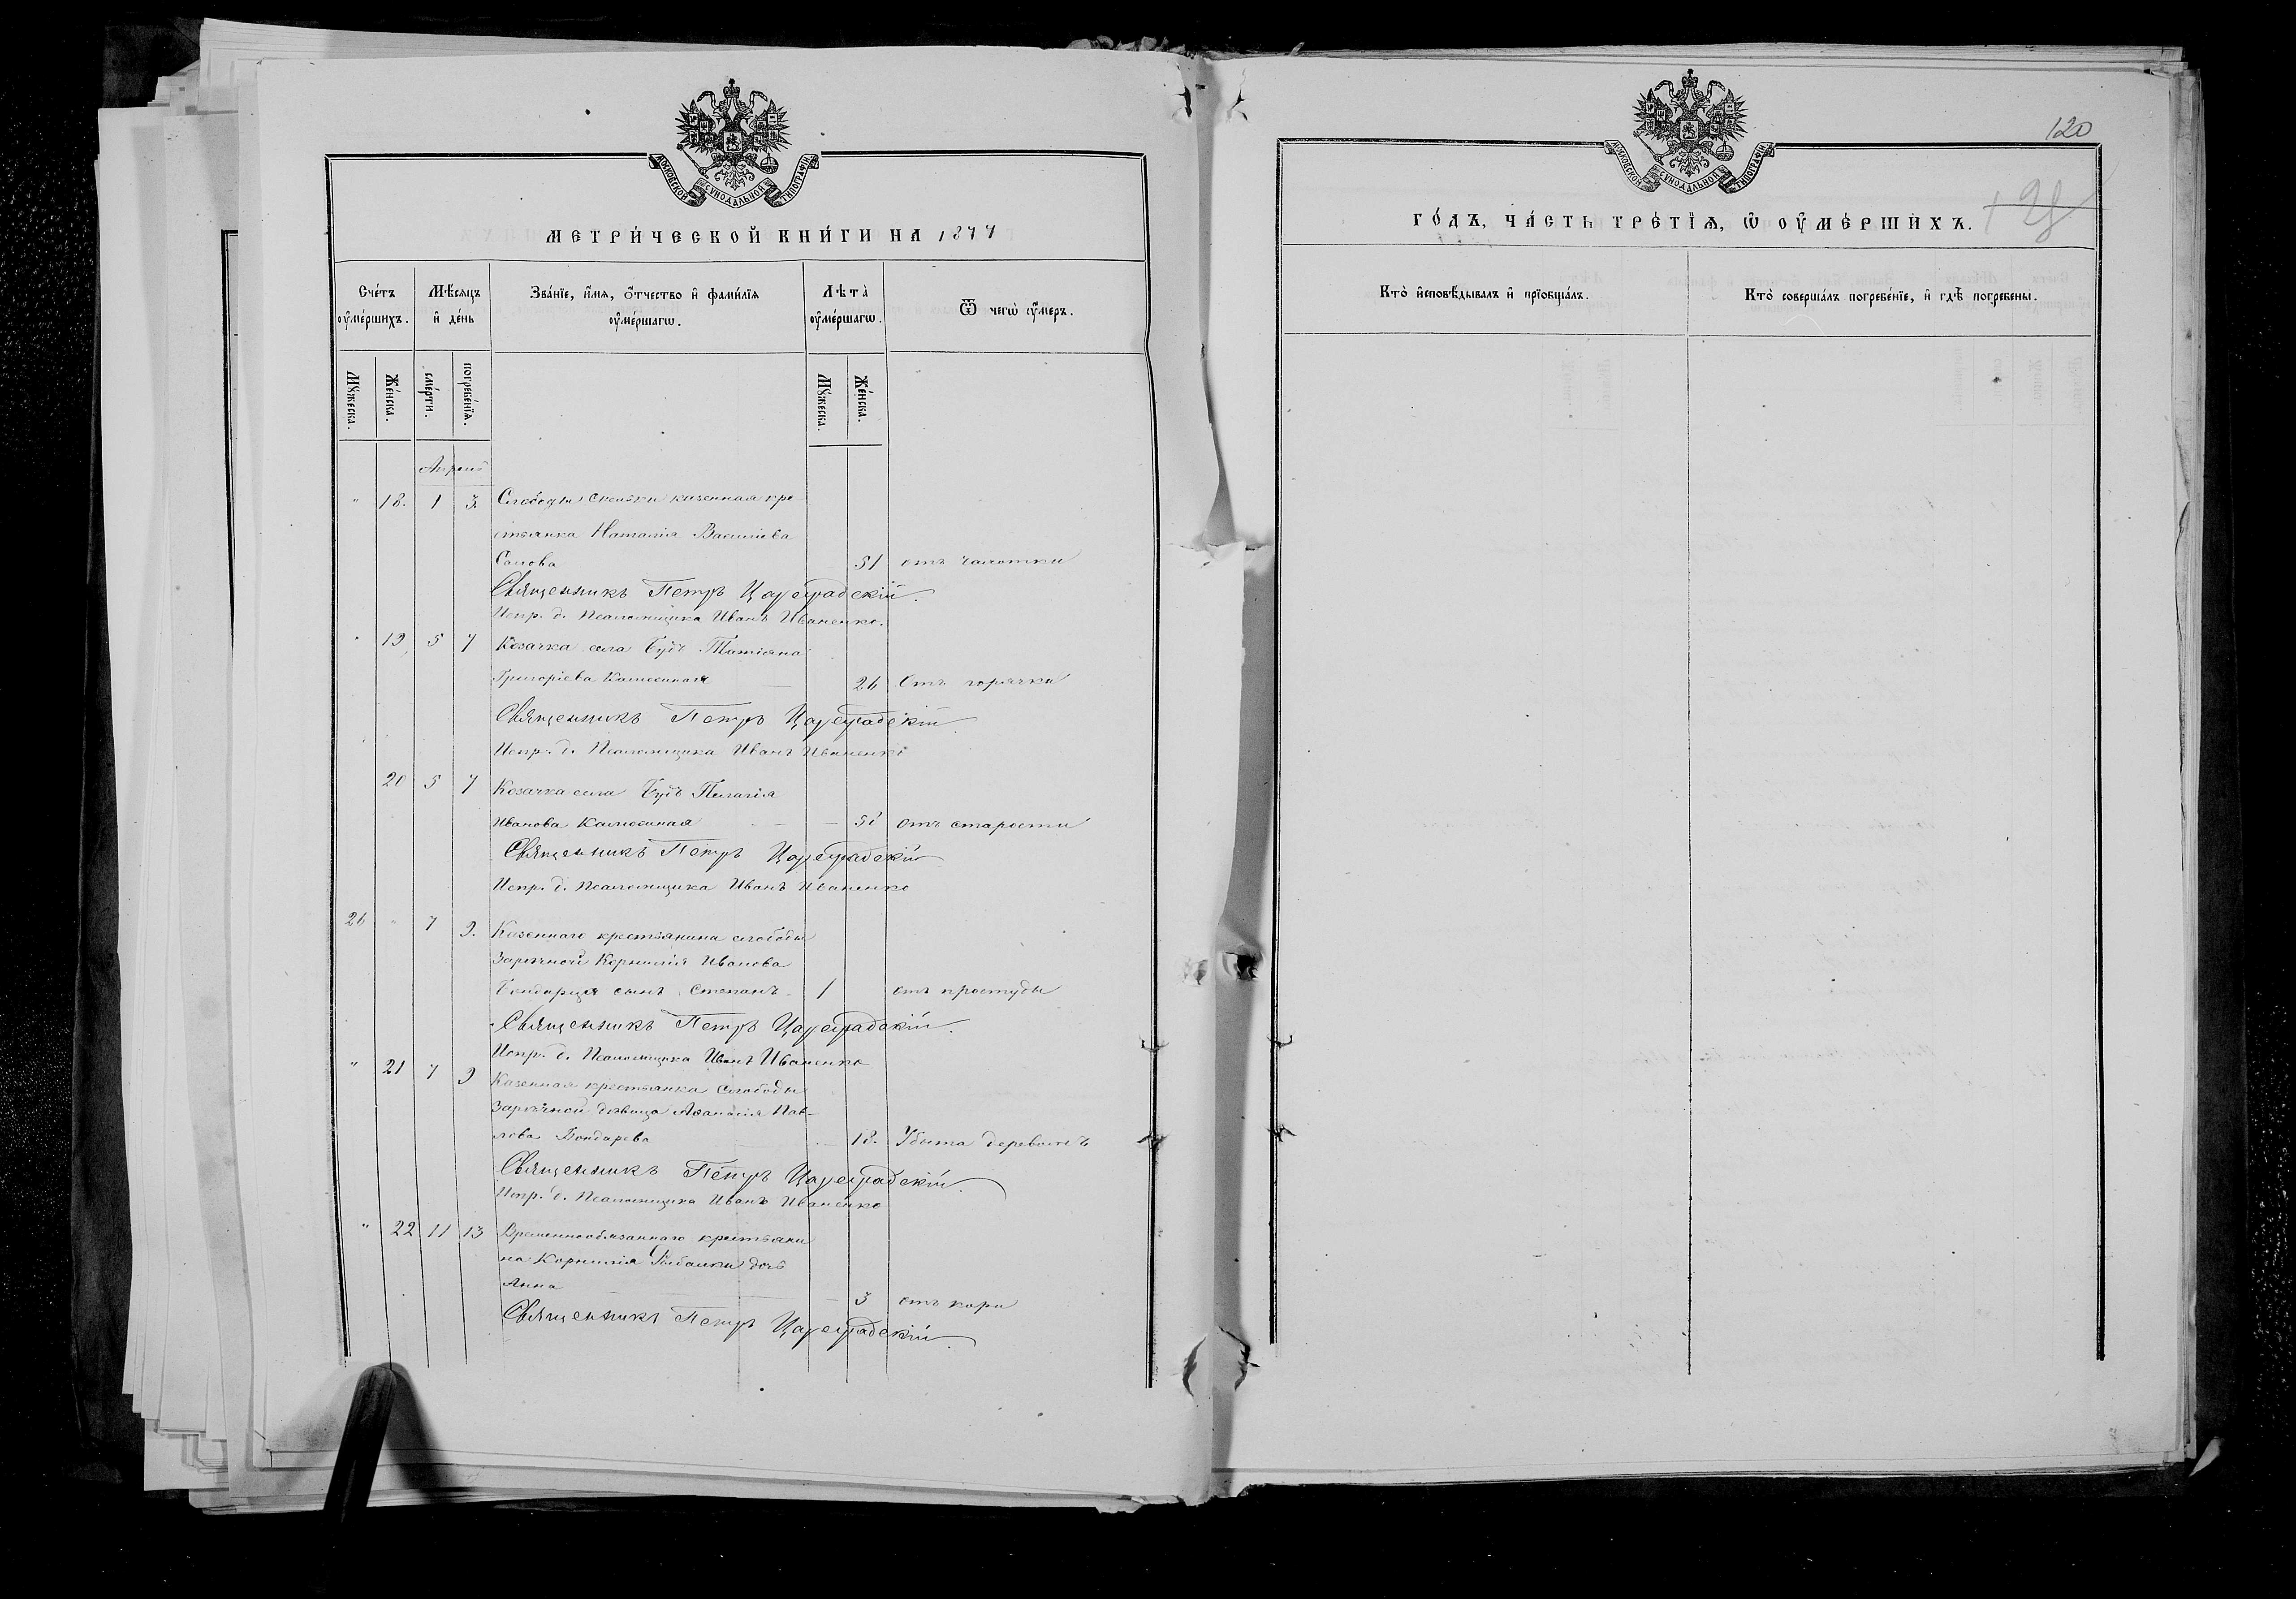 МОСКОВСКОЙ СѴНОДАЛЬНОЙ ТИПОГРАФІИ
МЕТРИ́ЧЕСКОЙ КНИ́ГИ НА 1877
Сче́тъ оу҆ме́ршихъ.
Мѣ́сяцъ и҆ де́нь
Зва́нїе, и҆́мя, ѻ҆́тчество и҆ фами́лїя оу҆ме́ршагѡ.
Лѣта̀ оу҆ме́ршагѡ.
Ѿ чегѡ̀ оу҆́меръ.
Мꙋ́жеска.
Же́нска.
сме́рти.
погребе́нїя.
Мꙋ́жеска.
Же́нска.
Апрель
" 18. 1 3. Слободы казенная кре
стьянка Наталія Василіева
51 отъ чахотки
Священникъ Петръ Цареградскій.
Испр. д. Псаломщика Иванъ Иваненко.
" 19 5 7 Козачка села Будъ Татіана
Григоріева 26 Отъ горячки
Священникъ Петръ Цареградскій.
Испр. д. Псаломщика Иванъ Иваненко
20 5 7 Козачка села Будъ Пелагія
Иванова отъ старости
Священникъ Петръ Цареградскій
Испр. д. Псаломщика Иванъ Иваненко
26 " 7 9. Казеннаго крестьянина слободы
Заречной Корнилія Иванова
Бондарця сынъ Степанъ 1 отъ простуды
Священникъ Петръ Цареградскій.
Испр. д. Псаломщика Иванъ Иваненко
" 21 7 9 Казенная крестьянка Слободы
Заречной девица Афанасія Пав-
лова Бондарева 18. Убита деревомъ
Священникъ Петръ Цареградскій.
Испр. д. Псаломщика Иванъ Иваненко
" 22 11 13 Временнообязаннаго крестьяни
на Корнилія Рыбалки дочь
Анна 3 отъ кори
Священникъ Петръ Цареградскій.
120
МОСКОВСКОЙ СѴНОДАЛЬНОЙ ТИПОГРАФІИ
ГО́ДЪ, ЧА́СТЬ ТРЕ́ТЇЯ, Ѡ҆ ОУ҆МЕ́РШИХЪ.
Кто̀ и҆сповѣ́дывалъ и҆ прїобща́лъ.
Кто̀ соверша́лъ погребе́нїе, и҆ гдѣ̀ погребены̀.